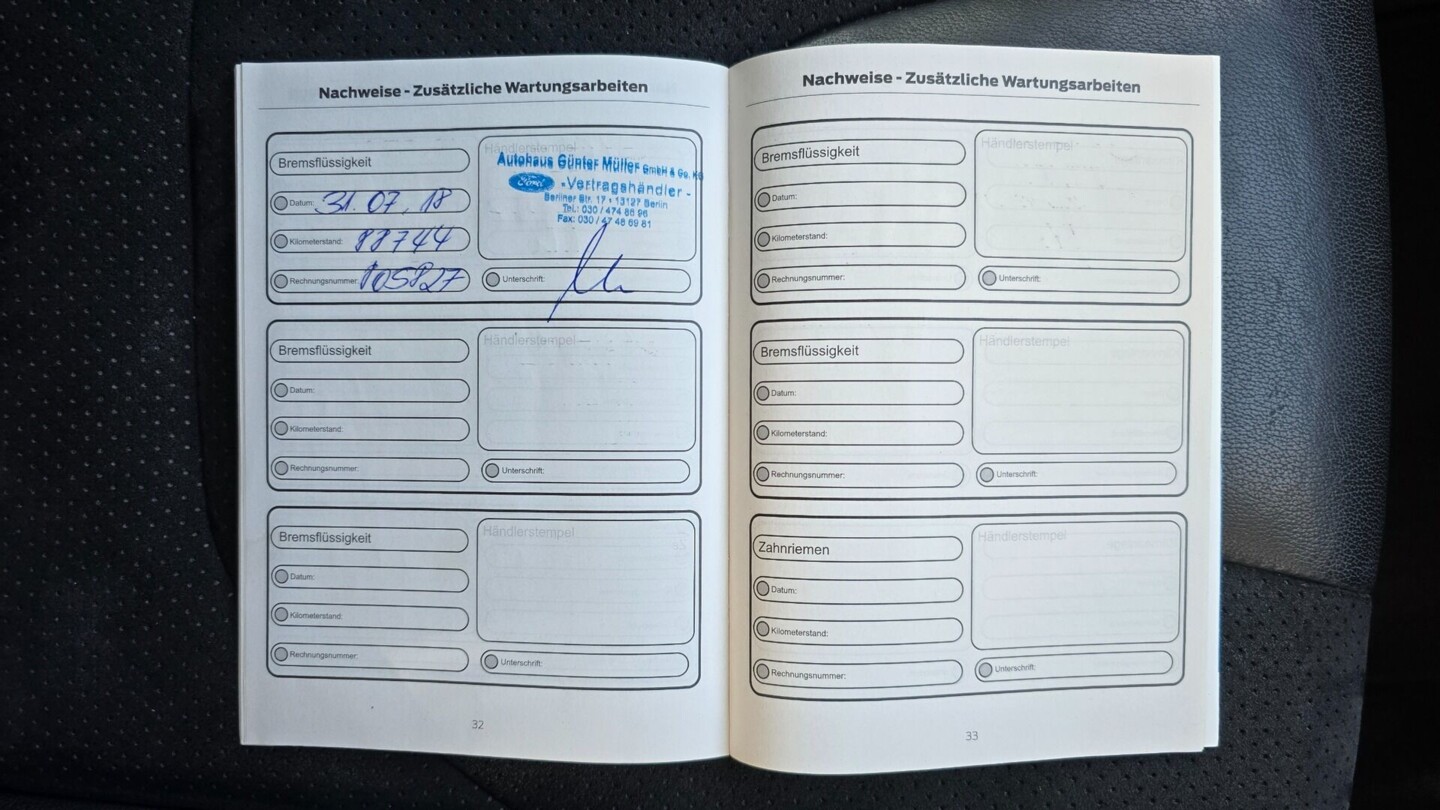 Nachweise - Zusätzliche Wartungsarbeiten
Bremsflüssigkeit
Datum: 31.07.18
Kilometerstand: 88744
Rechnungsnummer:
Händlerstempel
Autohaus Günter Müller GmbH & Co. KG
Ford -Vertragshändler-
Berliner Str. 17 • 13127 Berlin
Tel.: 030 / 474 88 96
Fax: 030 / 47 48 69 81
Unterschrift:
Bremsflüssigkeit
Datum:
Kilometerstand:
Rechnungsnummer:
Händlerstempel
Unterschrift:
Bremsflüssigkeit
Datum:
Kilometerstand:
Rechnungsnummer:
Händlerstempel
Unterschrift:
32
Nachweise - Zusätzliche Wartungsarbeiten
Bremsflüssigkeit
Datum:
Kilometerstand:
Rechnungsnummer:
Händlerstempel
Unterschrift:
Bremsflüssigkeit
Datum:
Kilometerstand:
Rechnungsnummer:
Händlerstempel
Unterschrift:
Zahnriemen
Datum:
Kilometerstand:
Rechnungsnummer:
Händlerstempel
Unterschrift:
33